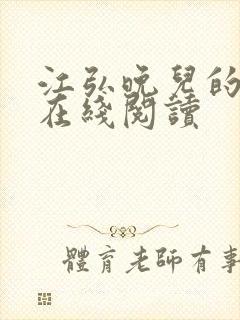 江弘晚兒的
在綫閱讀
體育老師有事